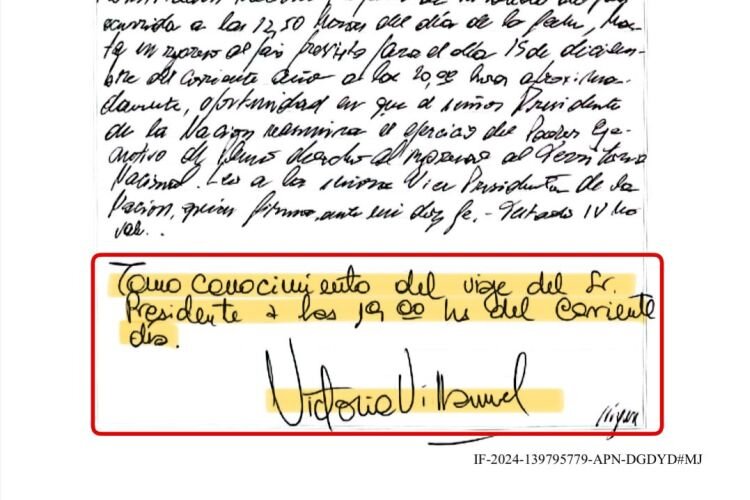 ocurrida a las 12,50 horas del día de la fecha, has-
ta su regreso al país previsto para el día 15 de diciem-
bre del corriente año a las 20,00 hora aproxima-
damente, oportunidad en que el señor Presidente
de la Nación reasumirá el ejercicio del Poder Eje-
cutivo de pleno derecho al ingresar al Territorio
Nacional. Leo a la señora Vice Presidenta de la
Nación, quien firma, ante mi doy fe. - Testado IV No
vale..
Tomo conocimiento del viaje del Sr.
Presidente a las 19 00 hs del corriente
día.
Victoria Villarruel
IF-2024-139795779-APN-DGDYD#MJ